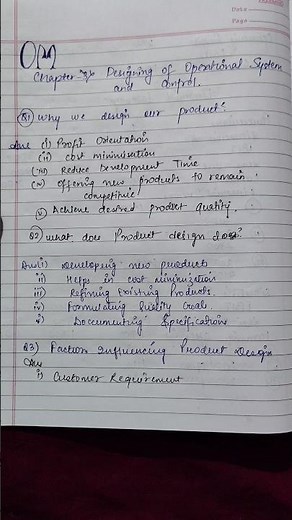 Date
Page
OM
Chapter 3:- Designing of Operational System
and control.
Q1) Why we design our product?
Ans (i) Profit Orientation
(ii) cost minimisation
(iii) Reduce Development Time
(iv) Offering new products to remain
competitive
(v) Achieve desired product quality.
Q2) What does Product design does?
Ans i) Developing new product
ii) Helps in cost minimization
iii) Refining Existing Products
iv) Formulating Quality Goals
v) Documenting Specifications
Q3) Factors Influencing Product Design
Ans
i) Customer Requirement